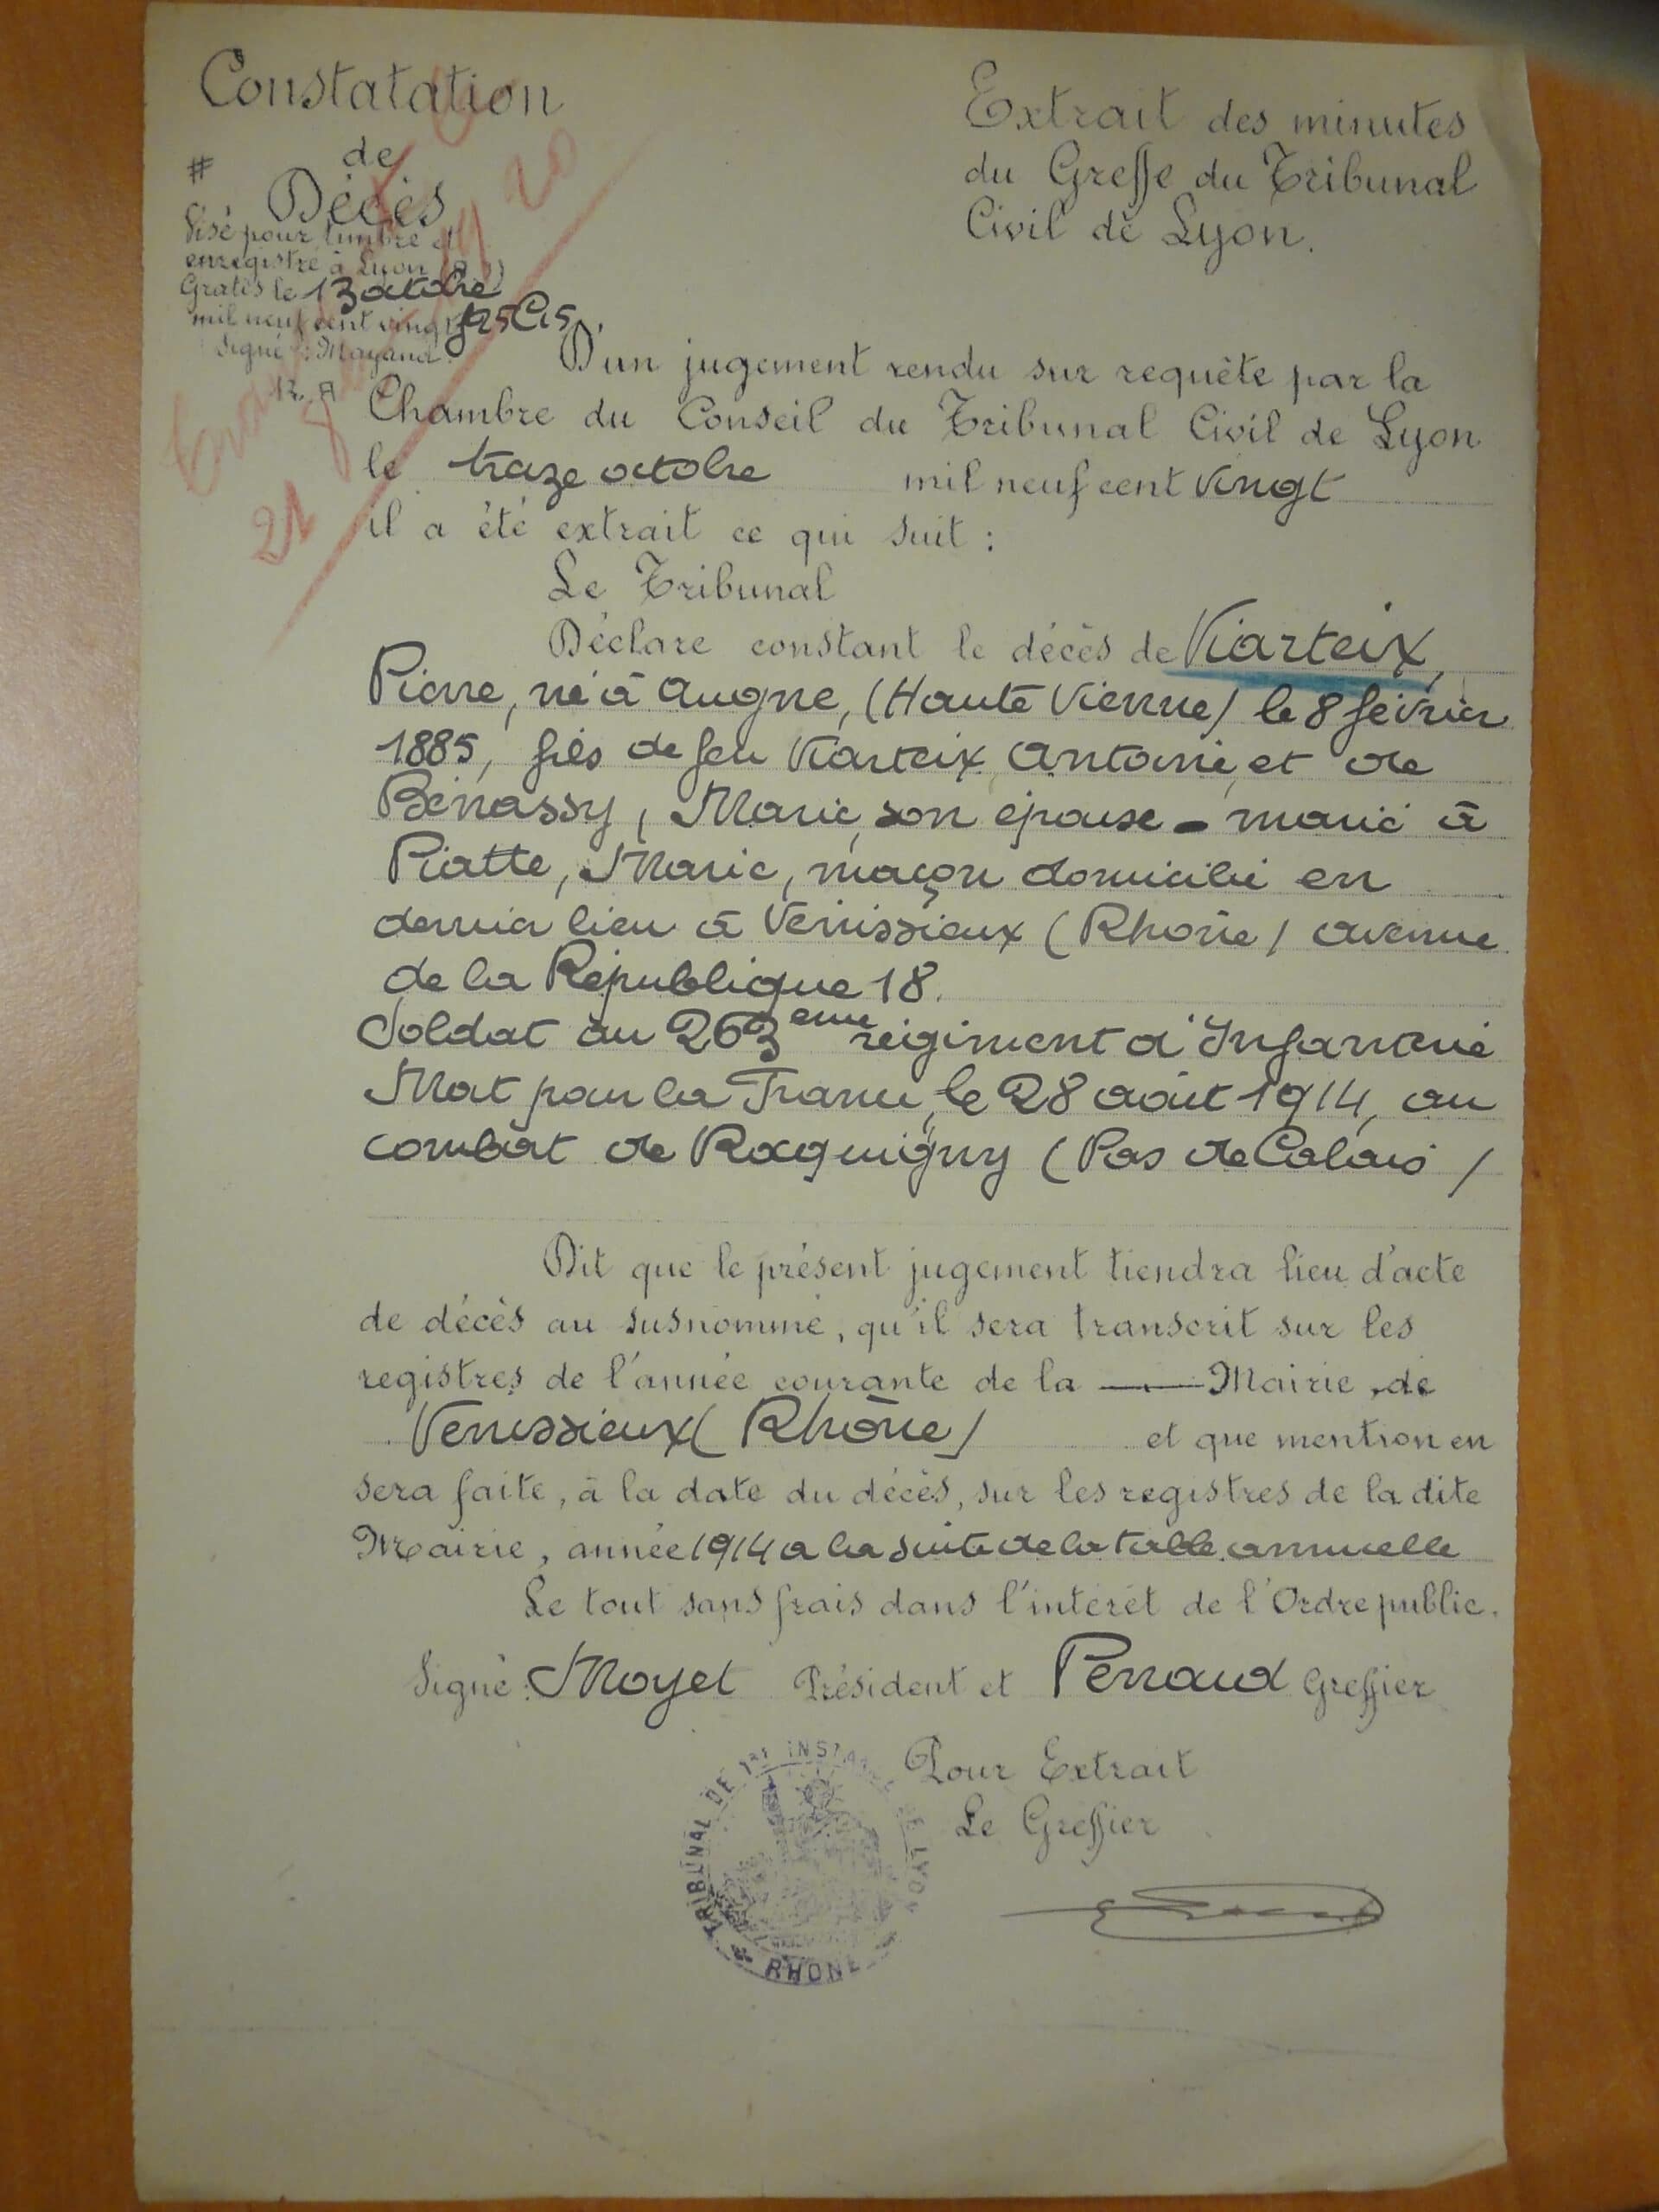 Constatation
de
Décès
#
Visé pour timbre et
enregistré à Lyon (A J)
Gratis le 13 octobre
mil neuf cent vingt f° 25 C 15
Signé: Mayand
12. A
21
20
Extrait des minutes
du Greffe du Tribunal
Civil de Lyon.
D'un jugement rendu sur requête par la
Chambre du Conseil du Tribunal Civil de Lyon
le treize octobre mil neuf cent vingt
il a été extrait ce qui suit :
Le Tribunal
Déclare constant le décès de Viarteix,
Pierre, né à Augne, (Haute Vienne) le 8 février
1885, fils de feu Viarteix, Antoine, et de
Bénassy, Marie, son épouse - marié à
Piatte, Marie, maçon domicilié en
dernier lieu à Vénissieux (Rhône) avenue
de la République 18.
Soldat au 263eme régiment d'Infanterie
Mort pour la France, le 28 août 1914, au
combat de Rocquigny (Pas de Calais)
Dit que le présent jugement tiendra lieu d'acte
de décès au susnommé, qu'il sera transcrit sur les
registres de l'année courante de la — Mairie de
Venissieux (Rhône) et que mention en
sera faite, à la date du décès, sur les registres de la dite
Mairie, année 1914 a la suite de la table annuelle
Le tout sans frais dans l'intérêt de l'Ordre public.
Signé: Moyet Président et Perraud Greffier
Pour Extrait
Le Greffier
TRIBUNAL DE 1re INSTANCE DE LYON
RHONE